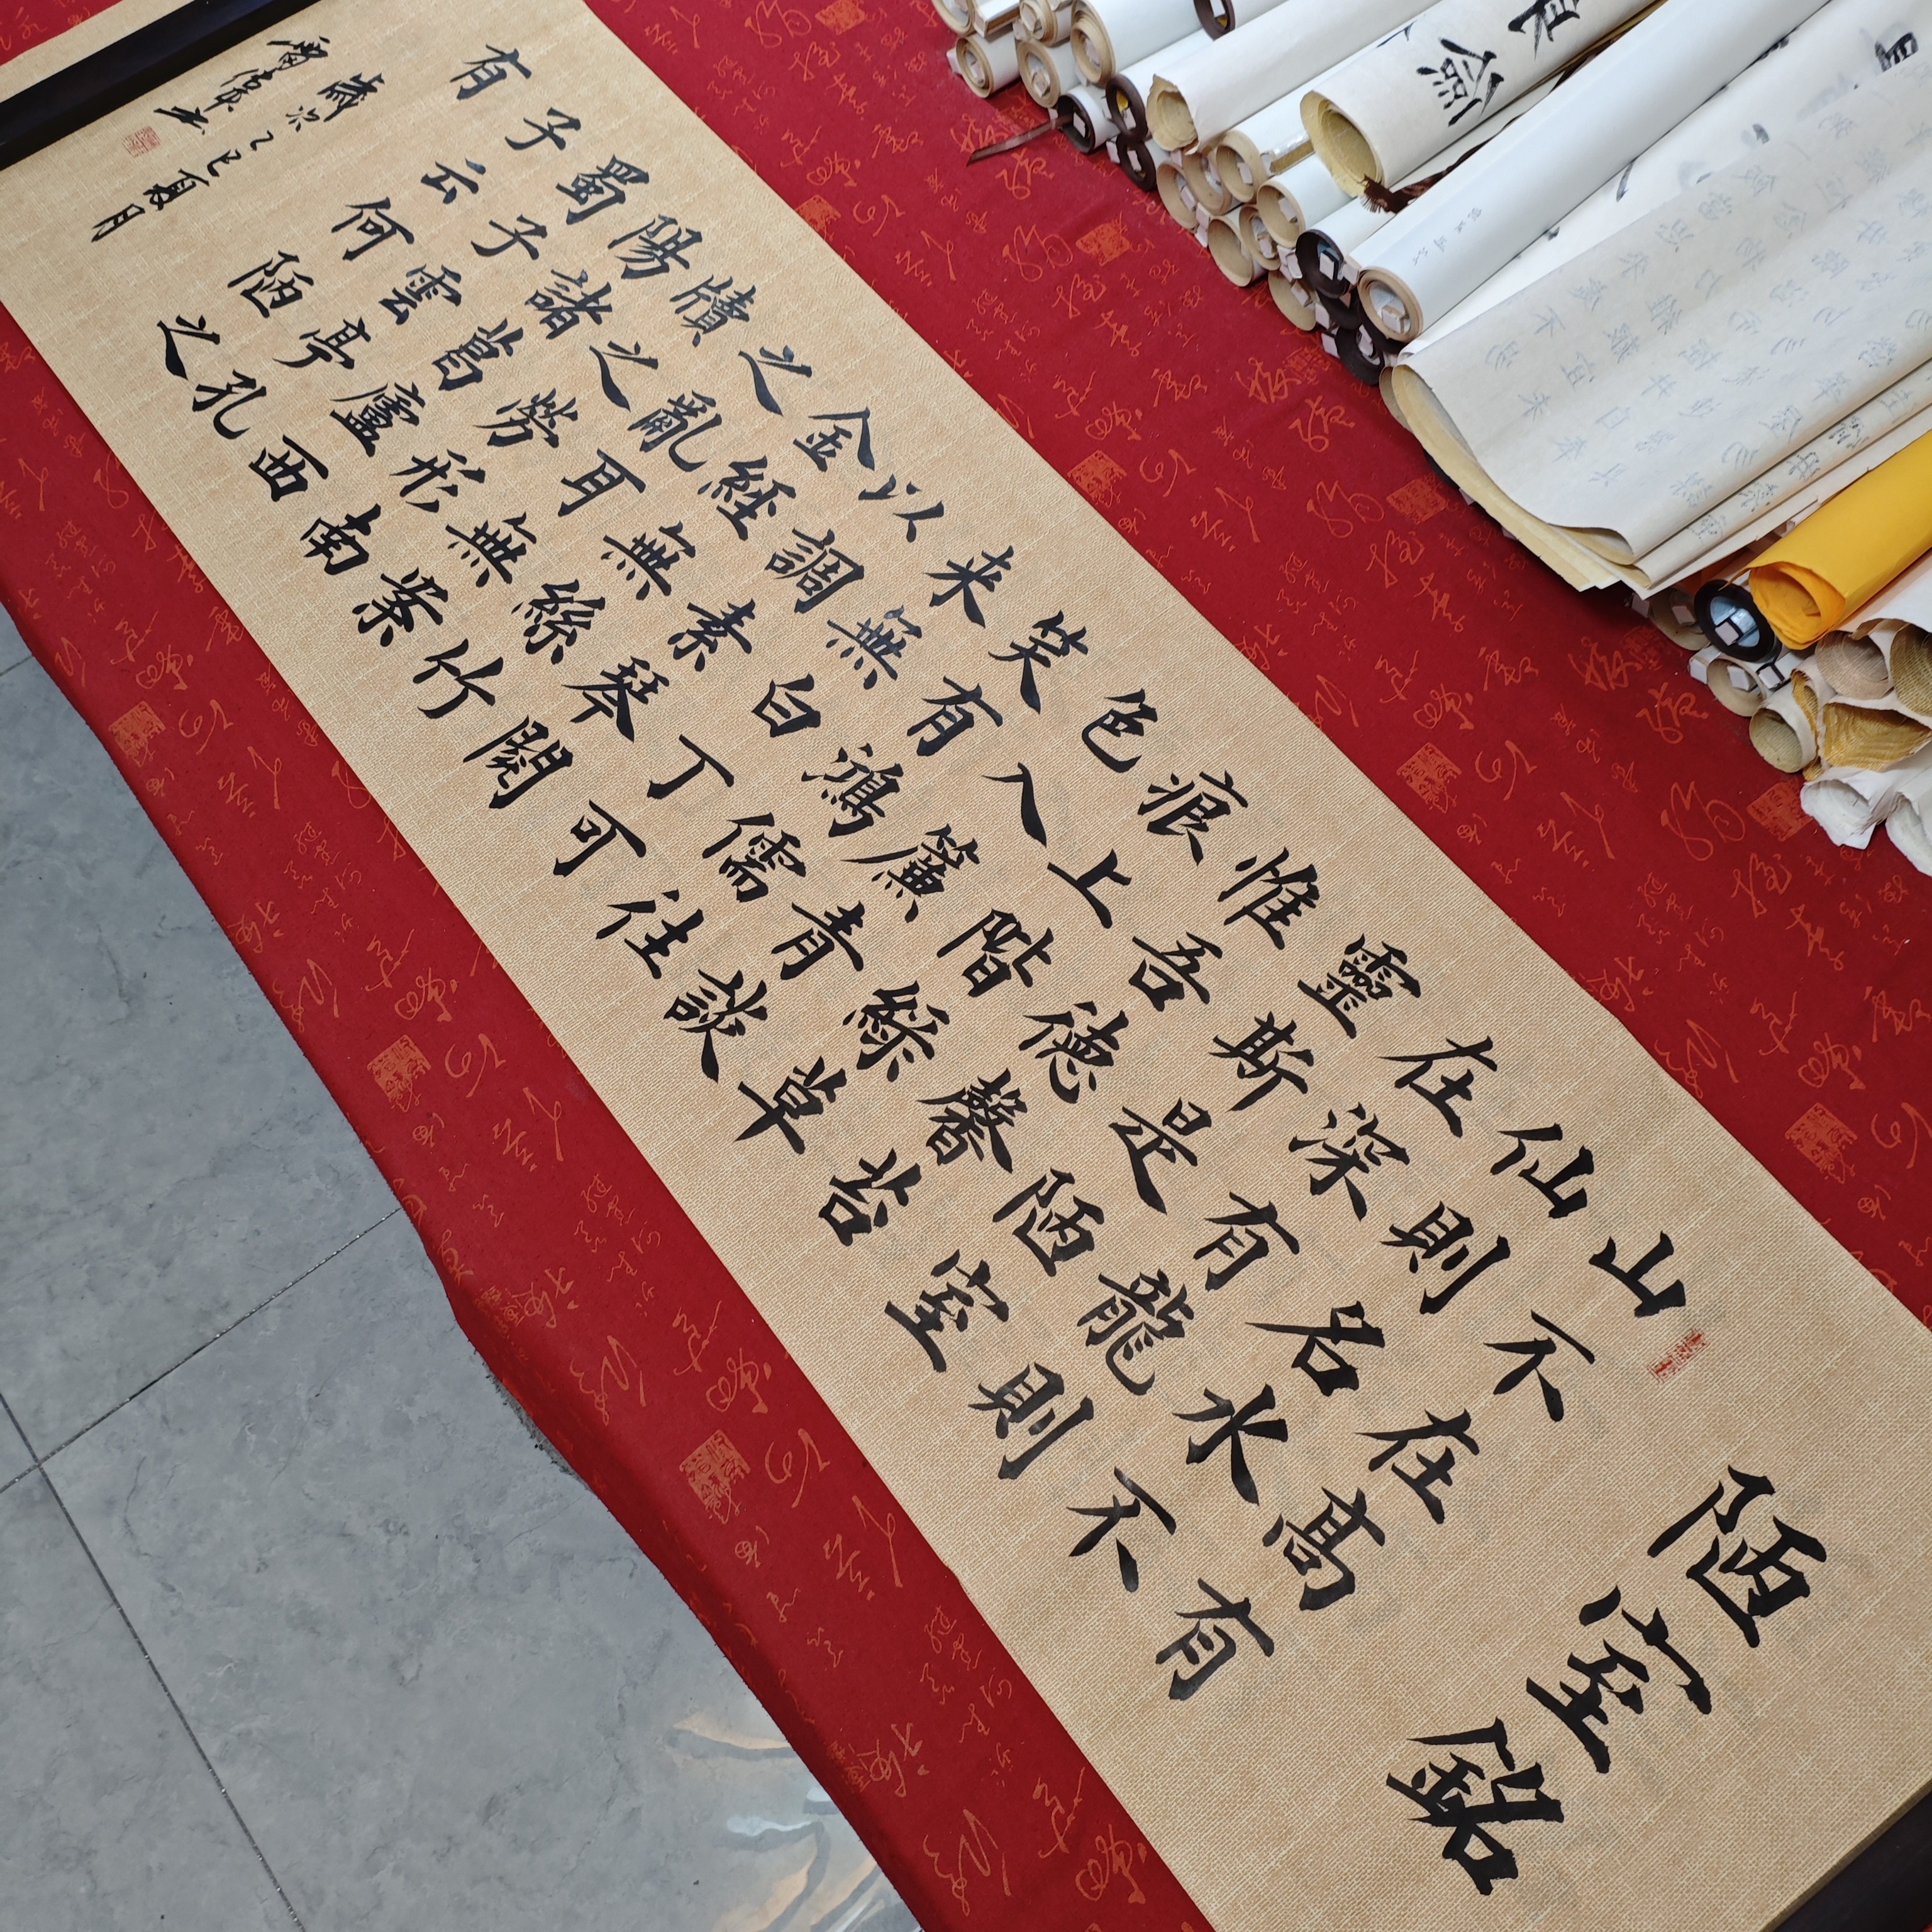 陋室銘
山不在高有
仙則名水不
在深有龍則
靈斯是陋室
惟吾德馨苔
痕上階綠草
色入簾青談
笑有鴻儒往
来無白丁可
以調素琴閱
金經無絲竹
之亂耳無案
牘之勞形南
陽諸葛廬西
蜀子雲亭孔
子云何陋之
有
歲次乙巳夏月